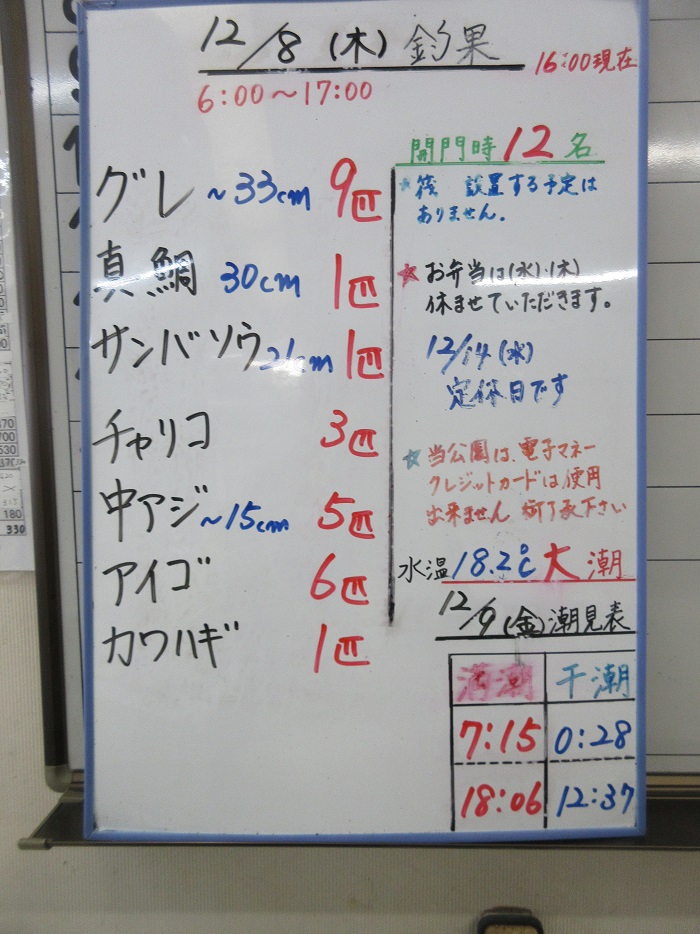 12/8(木)釣果
16:00現在
6:00〜17:00
グレ ~33cm 9匹
真鯛 30cm 1匹
サンバソウ 21cm 1匹
チャリコ 3匹
中アジ~15cm 5匹
アイゴ 6匹
カワハギ 1匹
開門時12名
後 設置する予定は
ありません。
★お弁当は(水)・(木)
休ませていただきます。
12/14(水)
定休日です
☆当公園は、電子マネー
クレジットカードは使用
出来ません 御了承下さい
水温18.2℃大潮
12/9(金)潮見表
満潮 干潮
7:15 0:28
18:06 12:37
180
330